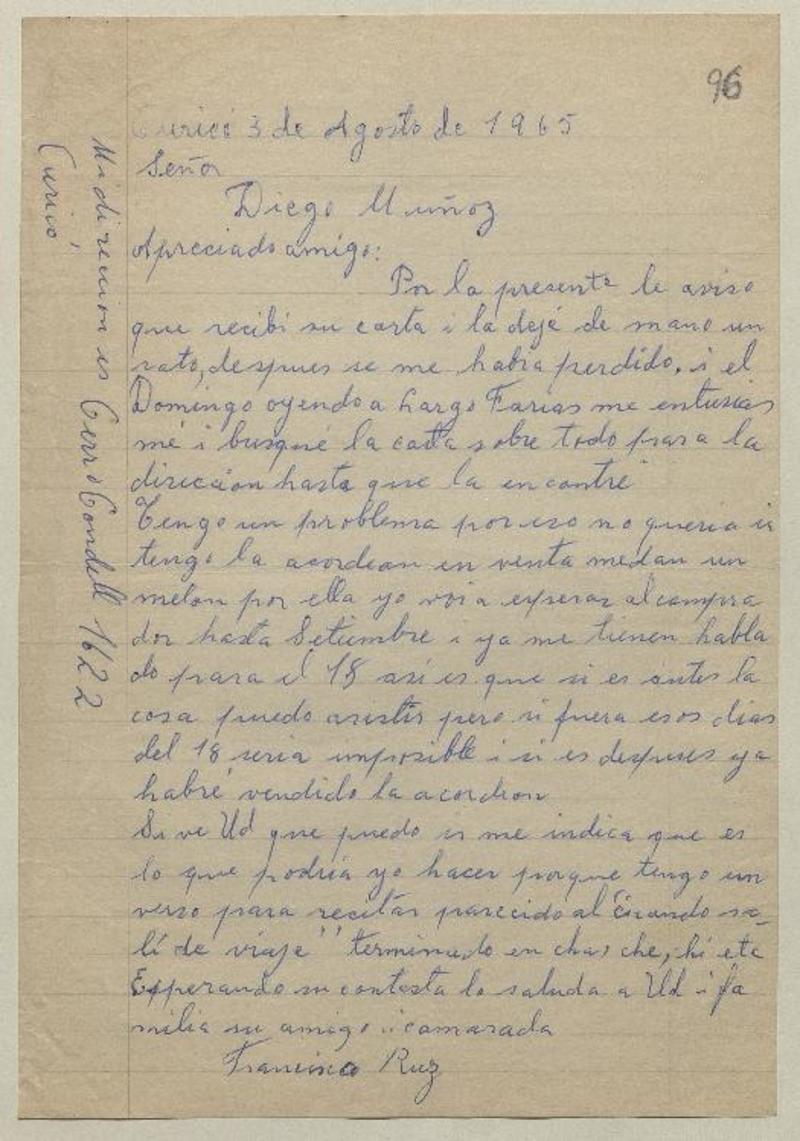 96
Curicó 3 de Agosto de 1965
Señor
Diego Muñoz
Apreciado amigo:
Por la presente le aviso
que recibí su carta i la dejé de mano un
rato, despues se me había perdido, i el
Domingo oyendo a Largo Farías me entusias
mé i busqué la carta sobre todo para la
dirección hasta que la encontré
Tengo un problema por eso no queria ir
tengo la acordeon en venta medan un
melon por ella yo voi a esperar al compra
dor hasta Setiembre i ya me tienen habla
do para el 18 así es que si es antes la
cosa puedo asistir pero si fuera esos dias
del 18 seria imposible i si es despues ya
habré vendido la acordeon
Si ve Ud que puedo ir me indica que es
lo que podría yo hacer porque tengo un
verso para recitar parecido al "cuando sa-
lí de viaje" terminado en cha, che, chi etc
Esperando su contesta lo saluda a Ud i fa
milia su amigo i camarada
Francisco Ruz
Mi direccion es Cerro Condell 1622
Curicó